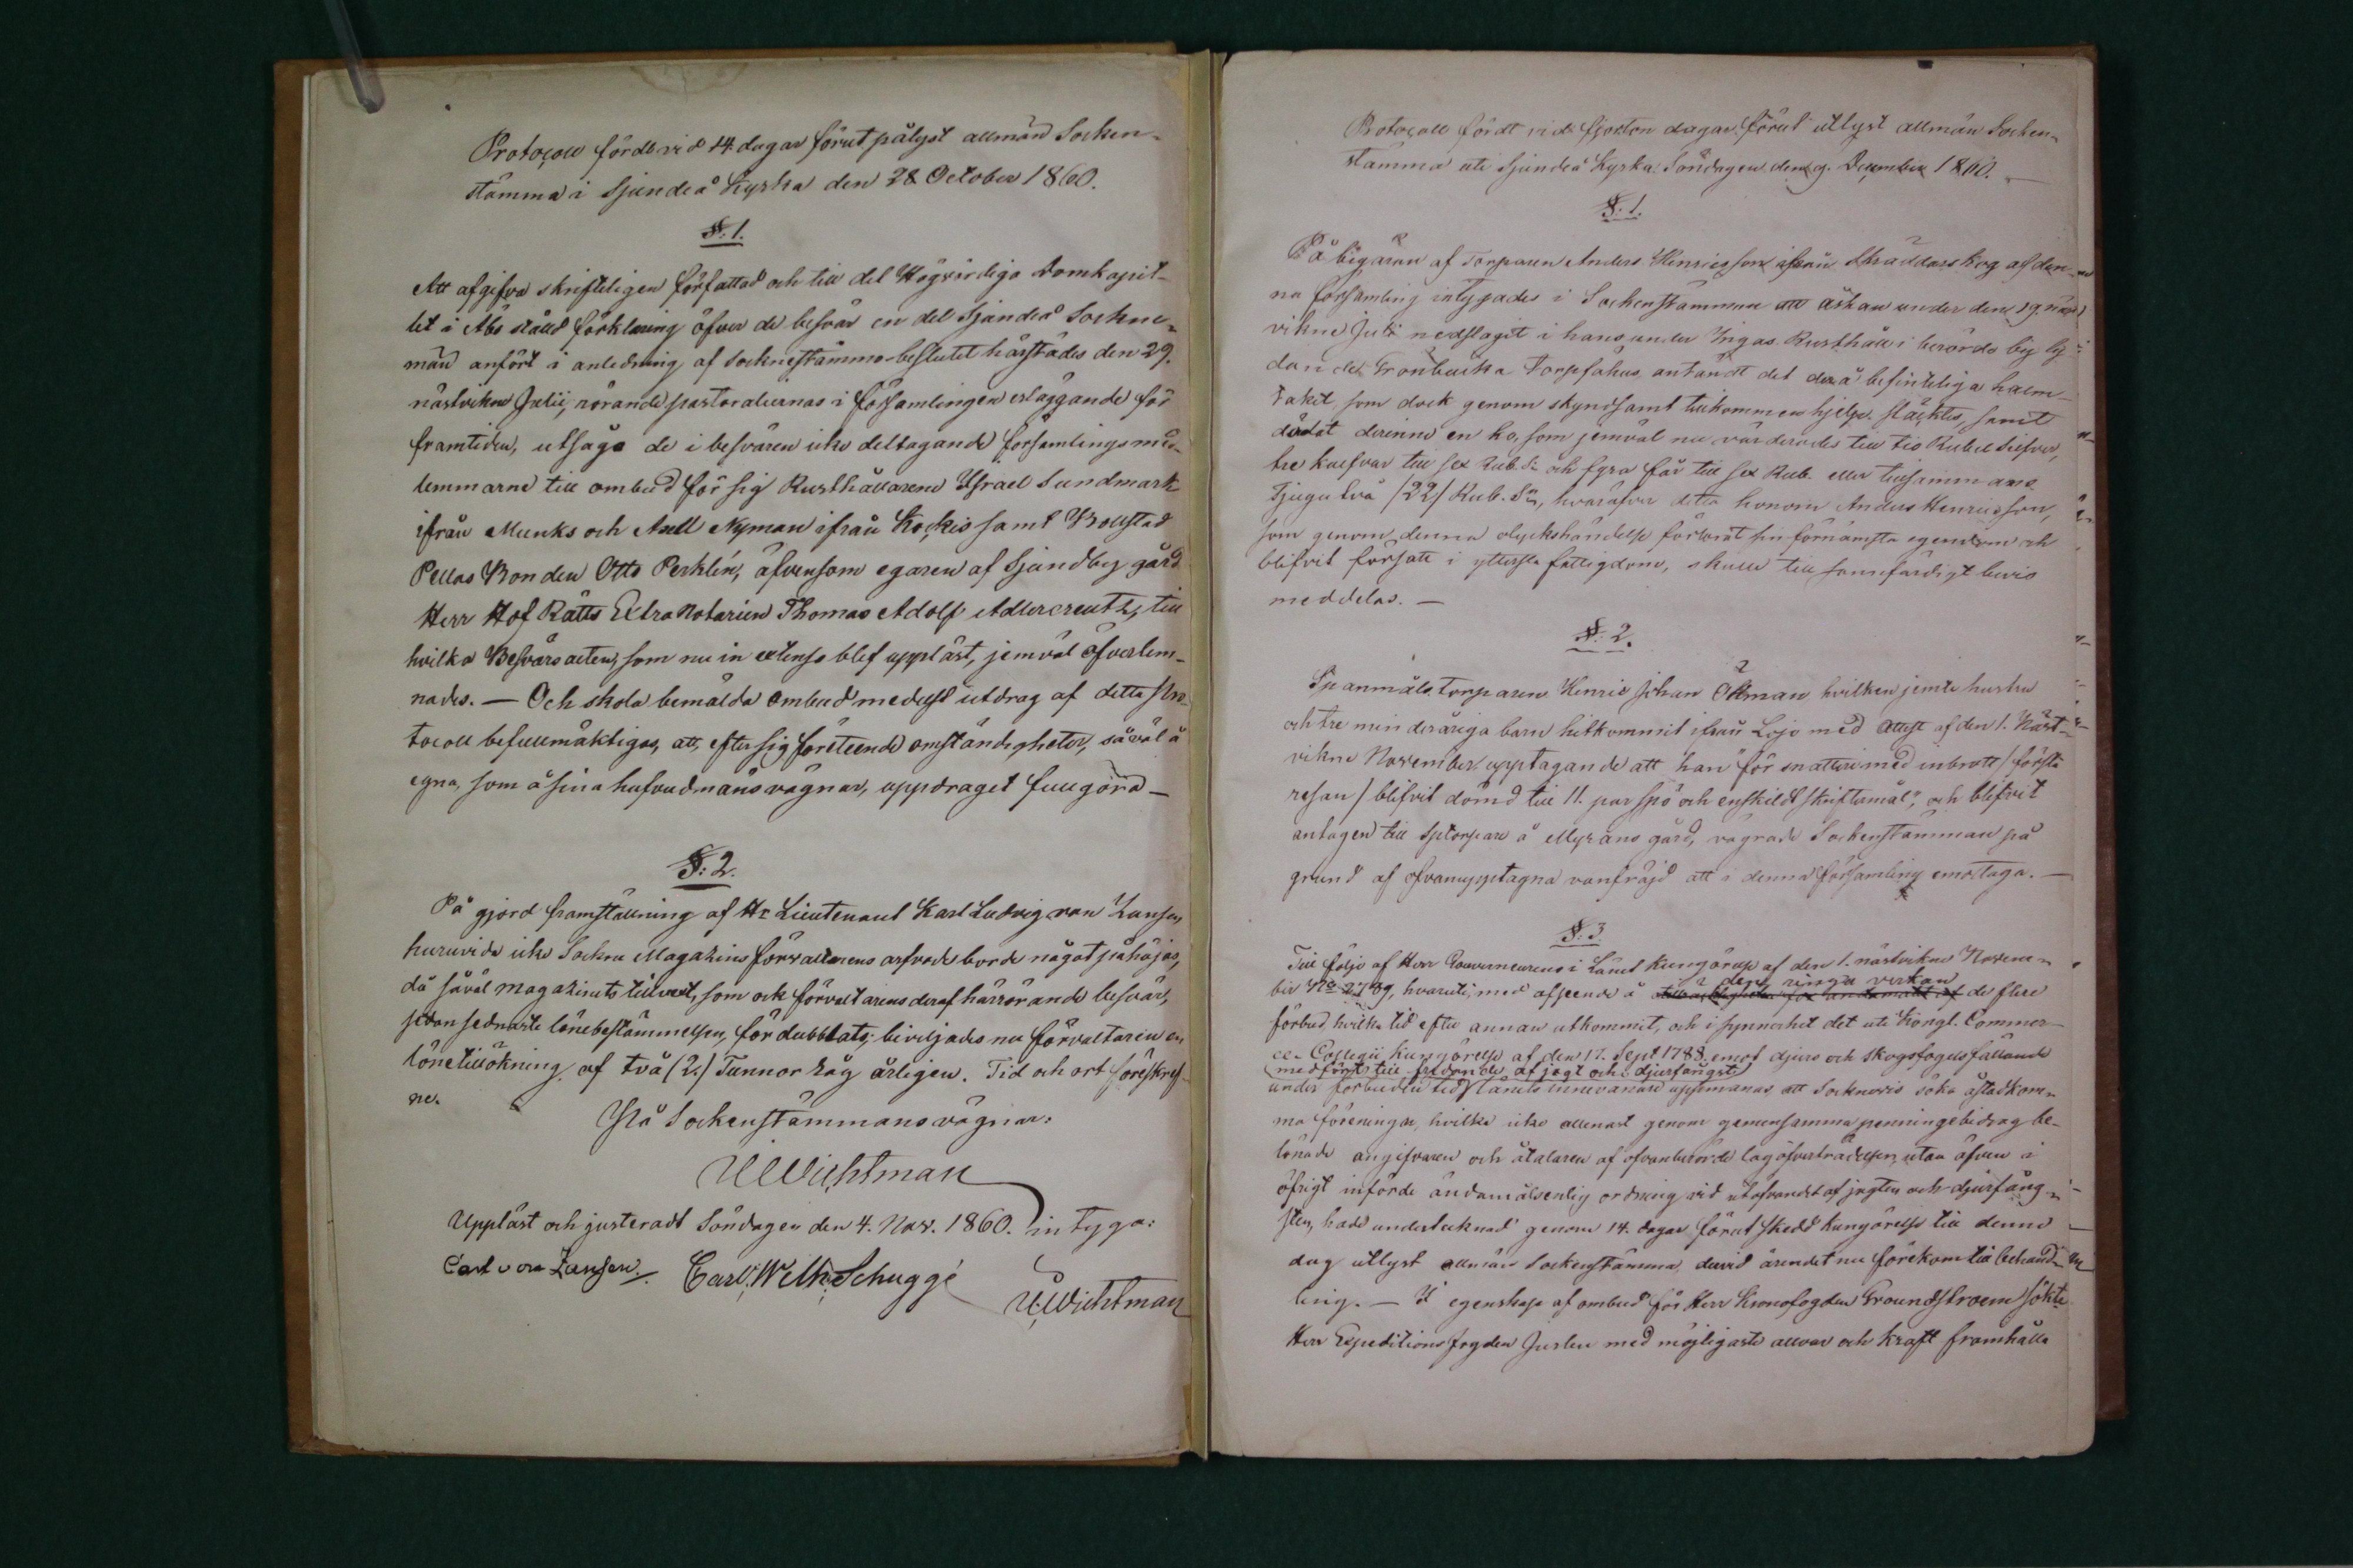 Protocoll fördt vid 14 dagar förut pålyst allmän Socken-
stämma i Sjundeå Kyrka den 28 October 1860.
§: 1.
Att afgifva skrifteligen författad och till det Högvördiga Domkapit-
let i Åbo ställd förklaring öfver de besvär en del Sjundeå Sockne-
män anfört i anledning af Socknestämmo-beslutet härstädes den 29.
nästvikne Julii, rörande pastoraliernas i församlingen erläggande för
framtiden, utsågo de i besvären icke deltagande församlings med-
lemmarne till ombud för sig Rusthållarene Israel Sundmark
ifrån Munks och Axell Nyman ifrån Kockis samt Bollstad
Pellas Bonden Otto Perklén, äfvensom egaren af Sjundby gård
Herr Hof Rätts Extra Notarien Thomas Adolf Adlercreutz, till
hvilka Besvärsacten, som nu in extenso blef uppläst, jemväl öfverlem-
nades. — Och skola bemälda ombud medelst utdrag af detta Pro-
tocoll befullmäktigas, att, efter sig företeende omständigheter, såväl å
egna, som å sina hufvudmäns vägnar, uppdraget fullgöra —
§: 2.
På gjord framställning af Hr Lieutenant Karl Ludvig von Zansen,
huruvida icke Sockne Magazins förvaltarens arfvode borde något påhöjas,
då såväl magazinets tillvext, som ock förvaltarens deraf härrörande besvär,
sedan sednaste lönebestämmelsen, fördubblats; beviljades nu förvaltaren en
lönetillökning af två (2.) Tunnor Råg årligen. Tid och ort föreskref-
ne.
På Sockenstämmans vägnar:
U Wichtman
Uppläst och justeradt Söndagen den 4. Nov. 1860. intyga:
Carl von Zansen. Carl. Wilh. Schuggé
U. Wichtman
Protocoll fördt vid fjorton dagar förut utlyst allmän Socken-
stämma uti Sjundeå Kyrka Söndagen den 9. December 1860. —
§: 1.
På begäran af Torparen Anders Henricsson ifrån Skräddarskog af den-
na församling intygades i Sockenstämman att åskan under den 19. näst-
vikne Juli nedslagit i hans under Ingas Rusthåll i berörde by ly-
dande Gronbacka Torpfähus, antändt det derå befintliga halm-
taket som dock genom skyndsamt tillkommen hjelp släcktes, samt
dödat derinne en ko, som jemväl nu värderades till tio Rubel Silfver,
tre kalfvar till sex Rub. S. och fyra får till sex Rub. eller tillsammans
Tjugutvå (22) Rub. Sr, hvaröfver detta honom Anders Henricsson,
som genom denna olyckshändelse förlorat sin förnämsta egendom och
blifvit försatt i yttersta fattigdom, skulle till sannfärdigt bevis
meddelas. —
§: 2.
Sp anmäls torparen Henric Johan Öhman hvilken jemte hustru
och tre minderåriga barn hitkommit ifrån Lojo med Attest af den 1. Näst-
vikne November upptagande att han "för snatteri med inbrott (första
resan) blifvit dömd till 11. par spö och enskildt skriftamål", och blifvit
antagen till Sptorpare å Myrans gård, vägrade Sockenstämman på
grund af ofvanupptagna vanfräjd att i denna församling emottaga. —
§: 3.
Till följe af Herr Gouverneurens i Länet Kungörelse af den 1. nästvikne Novem-
den ringa verkan
ber No 2789, hvaruti, med afseende å de flere
förbud, hvilka tid efter annan utkommit, och i synnerhet det uti Kongl. Commer-
ce-Collegii Kungörelse af den 17. Sept 1788 emot djurs och skogsfogels fällande
medfört till fredande af jagt och djurfångst
under förbuden tid Länets innevånare uppmanas, att Socknevis söka åstadkom-
ma föreningar, hvilka icke allenast genom gemensamma penningebidrag be-
lönade angifvaren och åtalaren af ofvanberörde lagöfverträdelser, utan äfven i
öfrigt införde ändamålsenlig ordning vid utöfvandet af jagten och djurfång-
sten, hade undertecknad genom 14. dagar förut skedd kungörelse till denne
dag utlyst allmän Sockenstämma, dervid ärendet nu förekom till behand-
ling. — I egenskap af ombud för Herr Kronofogden Groundstroem sökte
Herr Expeditionsfogden Juslen med möjligaste allvar och kraft framhålla